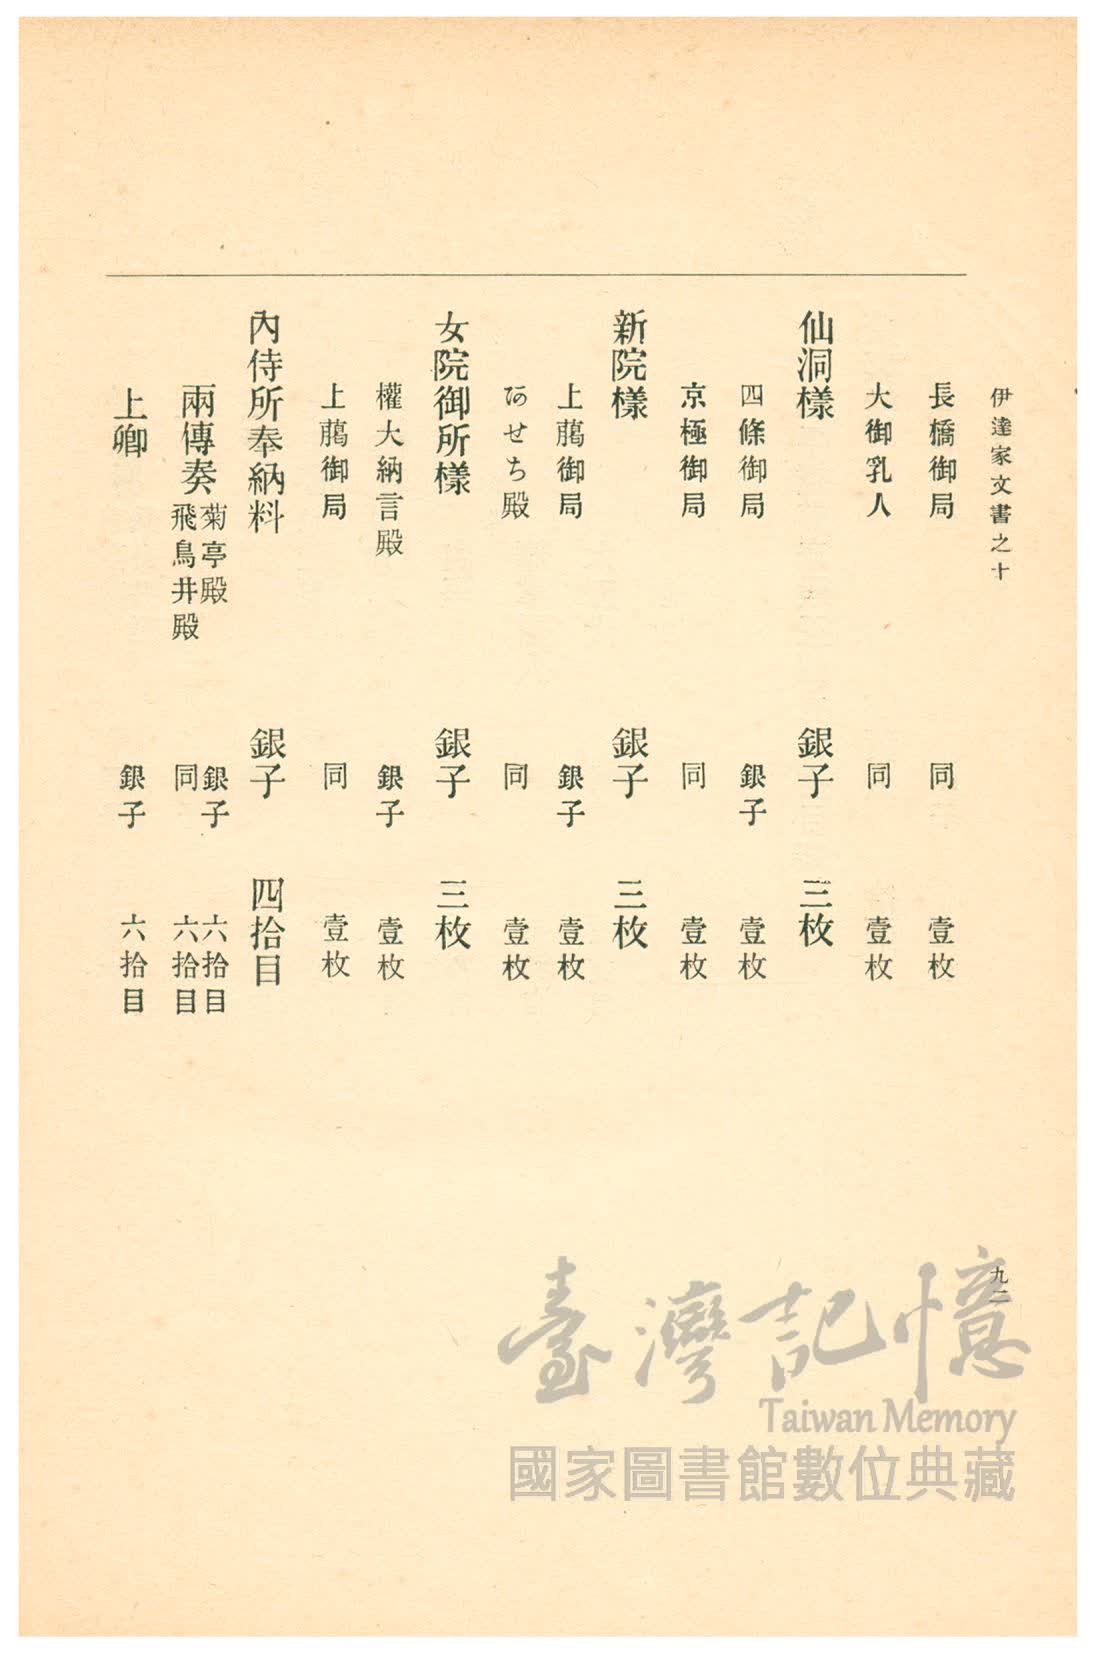 伊達家文書之十
長橋御局 同 壹枚
大御乳人 同 壹枚
仙洞樣 銀子 三枚
四條御局 銀子 壹枚
京極御局 同 壹枚
新院樣 銀子 三枚
上﨟御局 銀子 壹枚
あせち殿 同 壹枚
女院御所樣 銀子 三枚
權大納言殿 銀子 壹枚
上﨟御局 同 壹枚
內侍所奉納料 銀子 四拾目
兩傳奏 菊亭殿 銀子 六拾目
飛鳥井殿 同 六拾目
上卿 銀子 六拾目
九二
臺灣記憶
Taiwan Memory
國家圖書館數位典藏